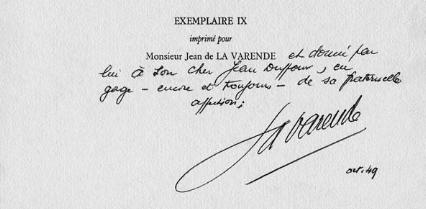 EXEMPLAIRE IX
imprimé pour
Monsieur Jean de LA VARENDE et donné par
lui à son cher Jean Duffour, en
gage - encore et toujours - de sa fraternelle
affection;
La Varende
oct. 49